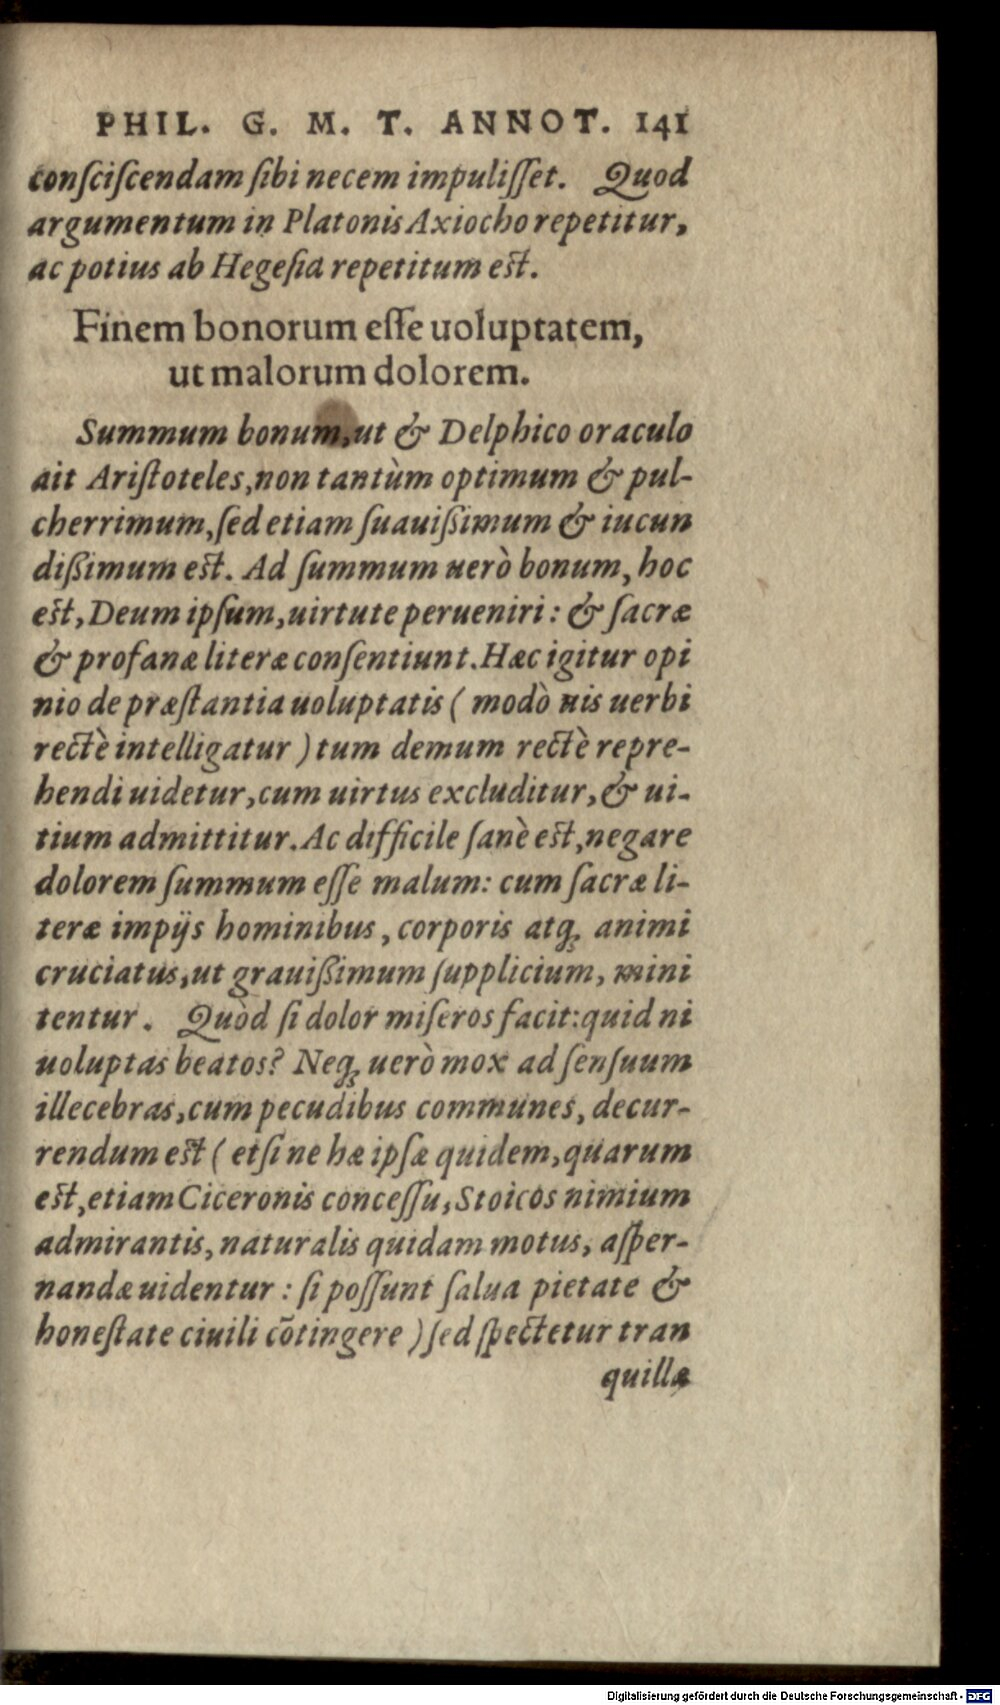 PHIL. G. M. T. ANNOT. 141
conſciſcendam ſibi necem impuliſſet. Quod
argumentum in Platonis Axiocho repetitur,
ac potius ab Hegeſia repetitum est.
Finem bonorum eſſe uoluptatem,
ut malorum dolorem.
Summum bonum, ut & Delphico oraculo
ait Ariſtoteles, non tantùm optimum & pul-
cherrimum, ſed etiam ſuauißimum & iucun
dißimum est. Ad ſummum uerò bonum, hoc
est, Deum ipſum, uirtute perueniri: & ſacræ
& profanæ literæ conſentiunt. Hæc igitur opi
nio de præſtantia uoluptatis ( modò uis uerbi
rectè intelligatur ) tum demum rectè repre-
hendi uidetur, cum uirtus excluditur, & ui-
tium admittitur. Ac difficile ſanè est, negare
dolorem ſummum eſſe malum: cum ſacræ li-
teræ impijs hominibus, corporis atq; animi
cruciatus, ut grauißimum ſupplicium, mini
tentur. Quòd ſi dolor miſeros facit: quid ni
uoluptas beatos? Neq; uerò mox ad ſenſuum
illecebras, cum pecudibus communes, decur-
rendum est ( etſi ne hæ ipſæ quidem, quarum
est, etiam Ciceronis conceſſu, Stoicos nimium
admirantis, naturalis quidam motus, aſper-
nandæ uidentur: ſi poſſunt ſalua pietate &
honeſtate ciuili cōtingere ) ſed ſpectetur tran
quillæ
Digitalisierung gefördert durch die Deutsche Forschungsgemeinschaft - DFG